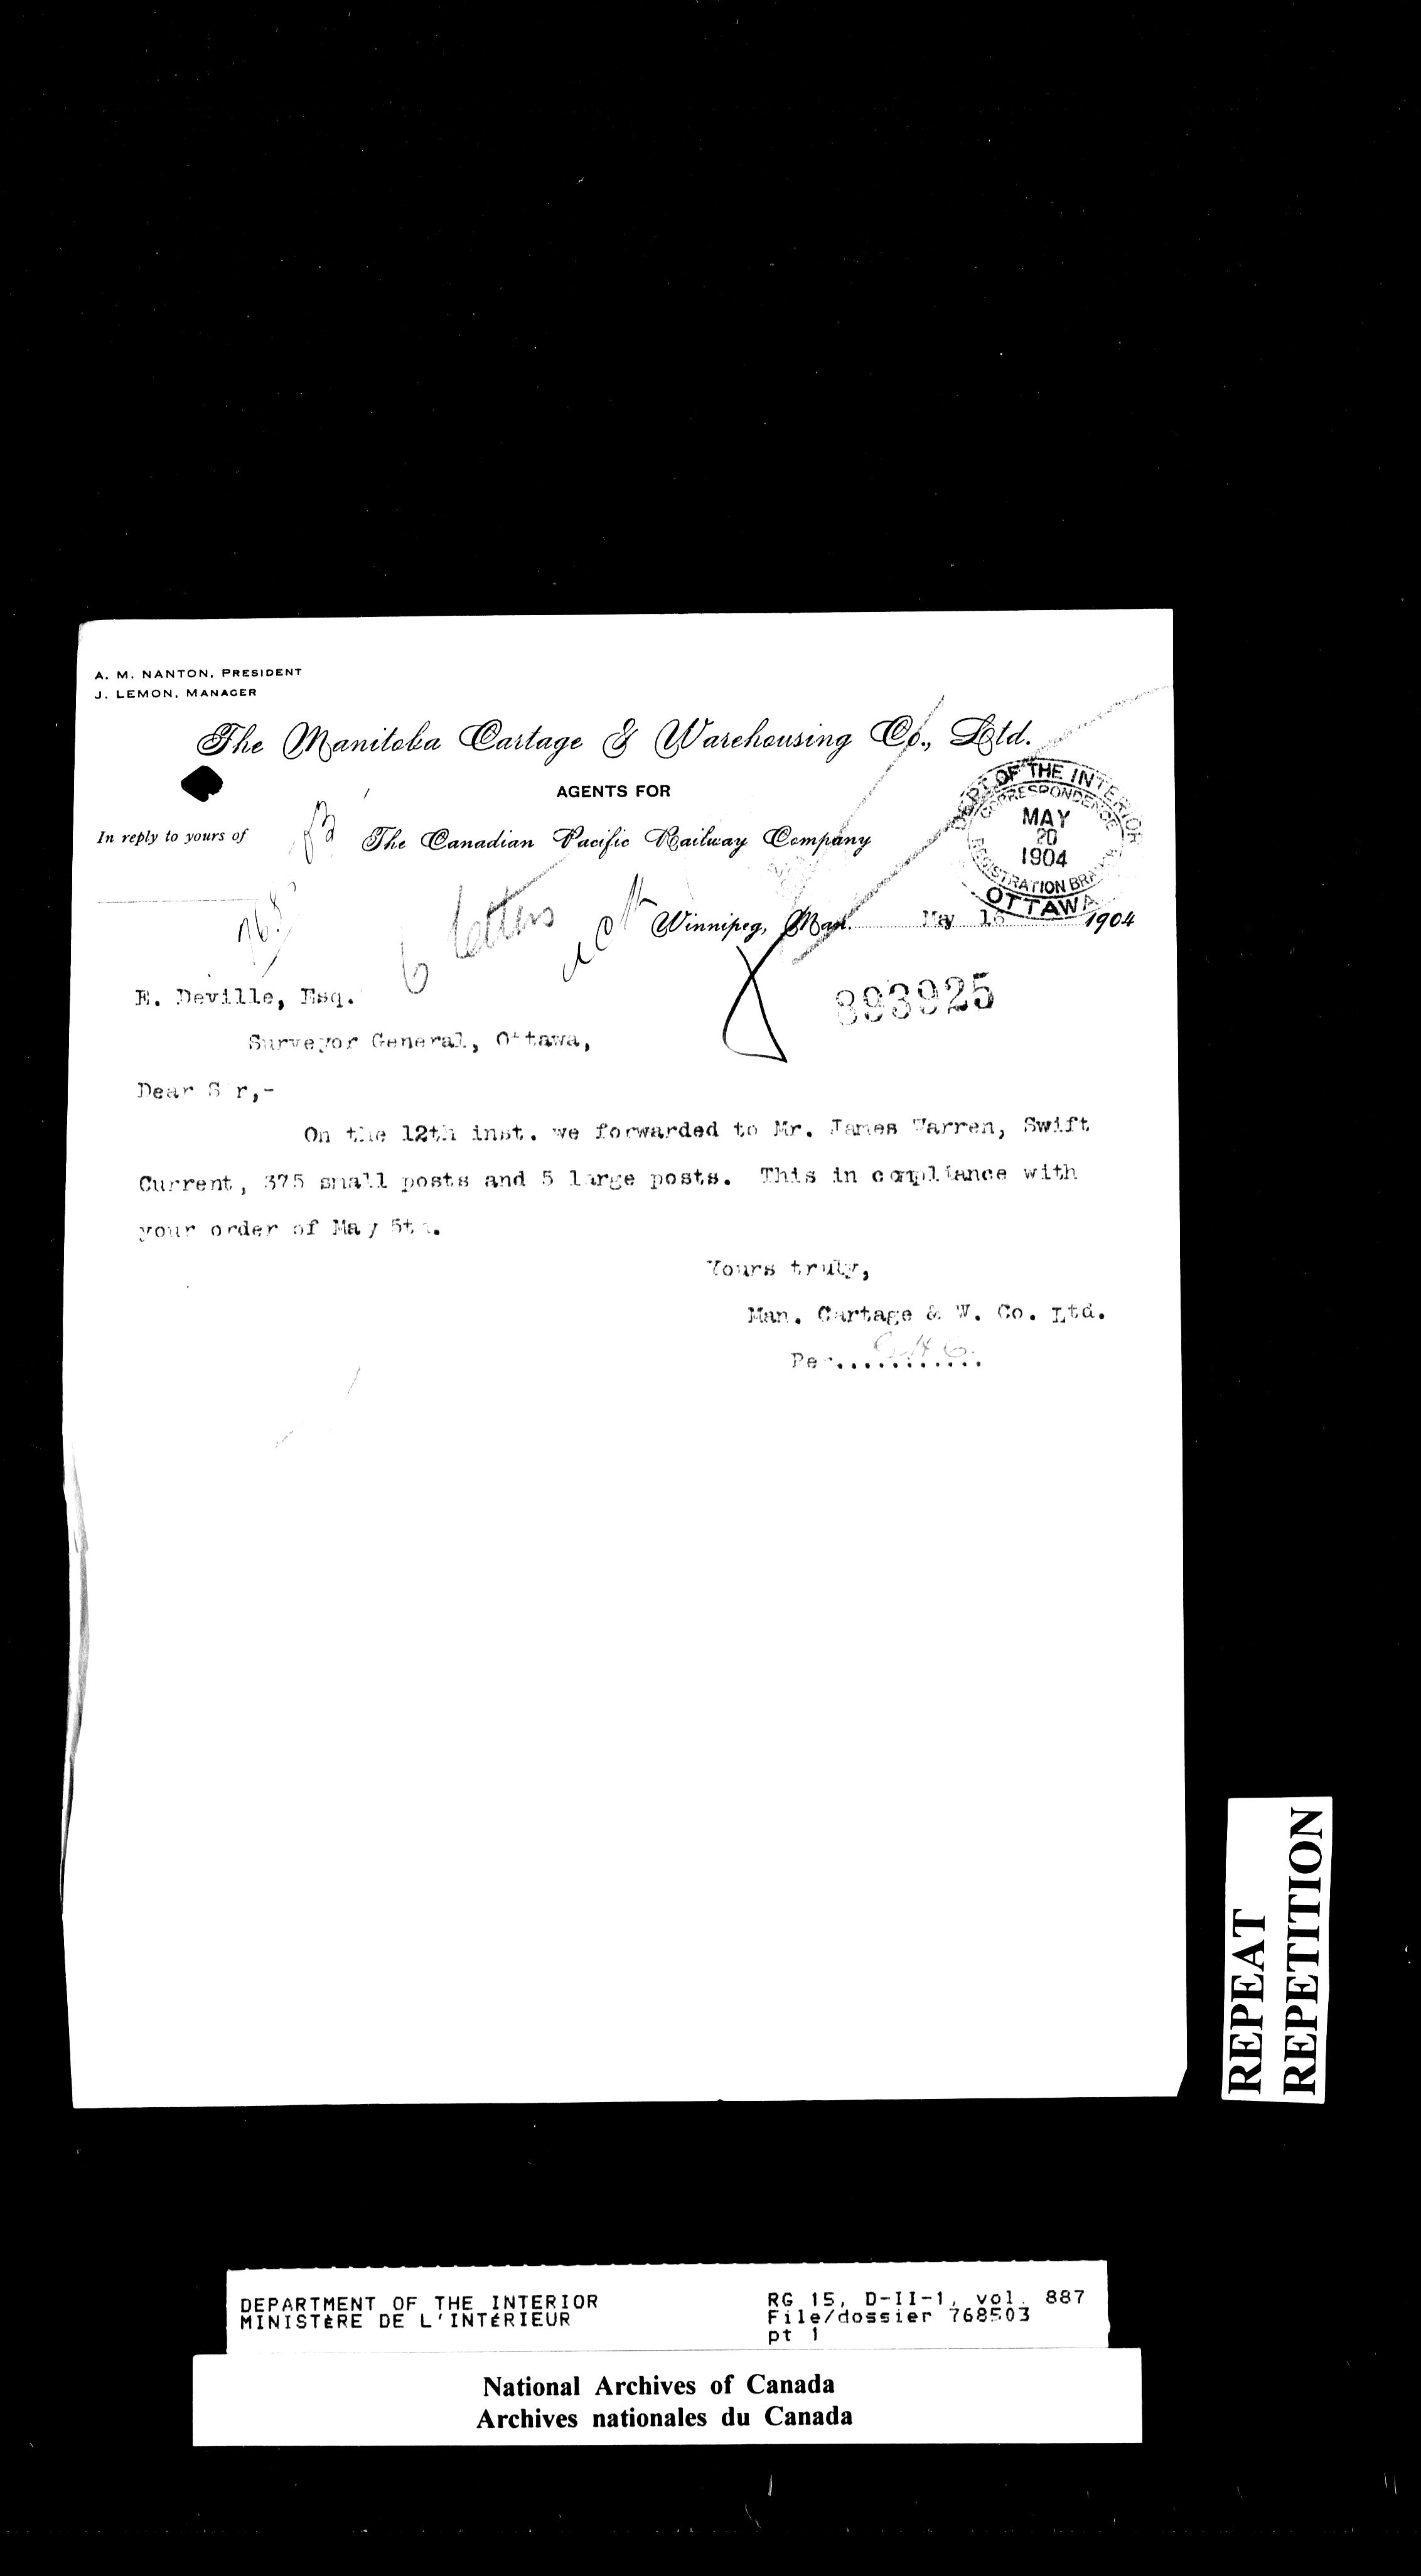 A. M. NANTON, PRESIDENT
J. LEMON, MANAGER
The Manitoba Cartage & Warehousing Co., Ltd.
AGENTS FOR
In reply to yours of
The Canadian Pacific Railway Company
DEPT OF THE INTERIOR
CORRESPONDENCE
MAY
20
1904
REGISTRATION BRANCH
OTTAWA
6 letters
Winnipeg, Man. May 1904
893925
E. Deville, Esq.
Surveyor General, Ottawa,
Dear Sir,-
On the 12th inst. we forwarded to Mr. James Warren, Swift
Current, 375 small posts and 5 large posts. This in compliance with
your order of May 5th.
Yours truly,
Man. Cartage & W. Co. Ltd.
Per............
REPEAT
REPETITION
DEPARTMENT OF THE INTERIOR
MINISTÈRE DE L'INTÉRIEUR
RG 15, D-II-1, vol. 887
File/dossier 768503
pt 1
National Archives of Canada
Archives nationales du Canada